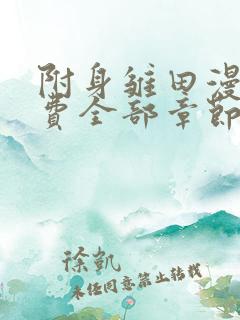 附身雏田漫
费全部章节
徐凯
未经同意禁止转载